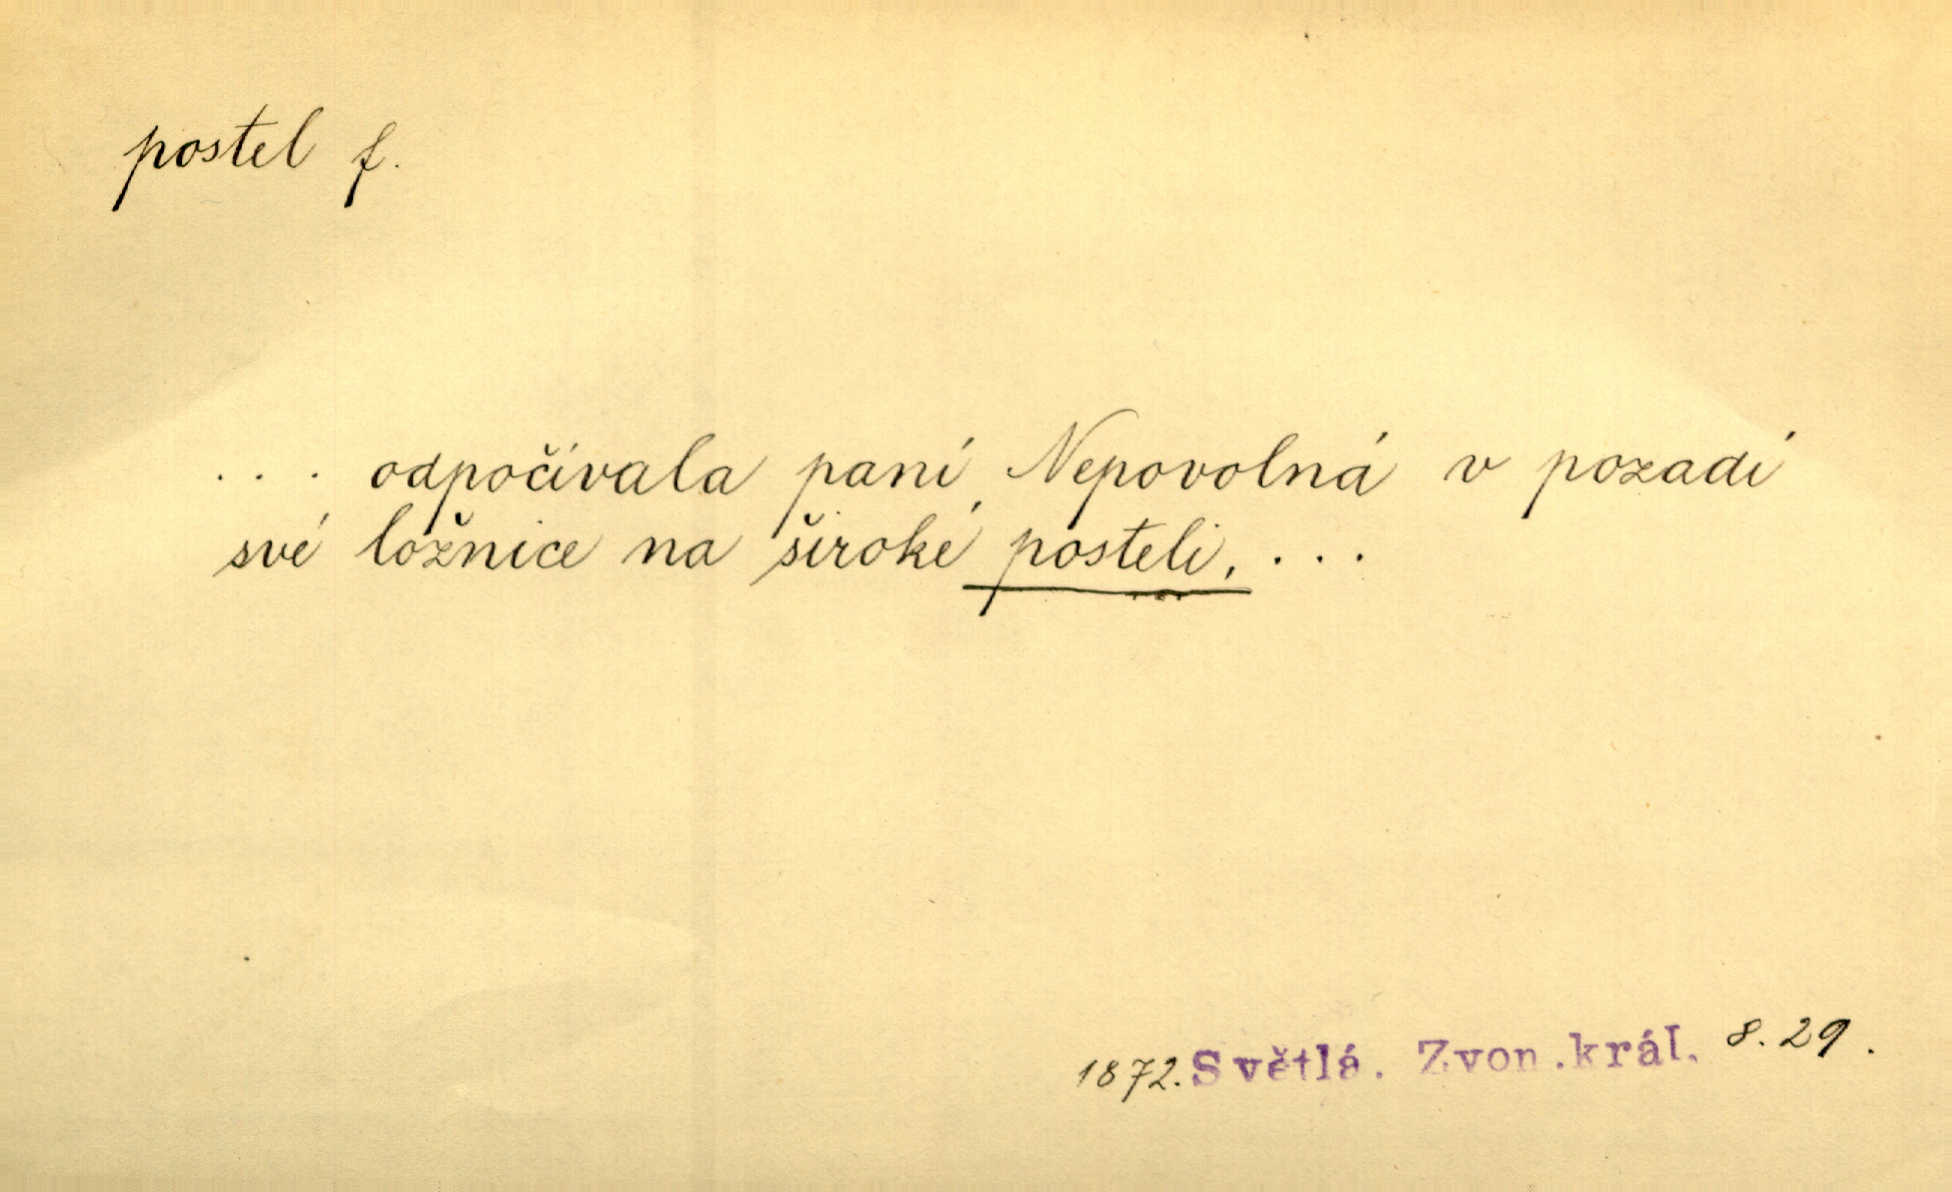 postel f.
... odpočívala paní Nepovolná v pozadí
své ložnice na široké posteli, ...
1872. Světlá. Zvon.král. 8. 29.